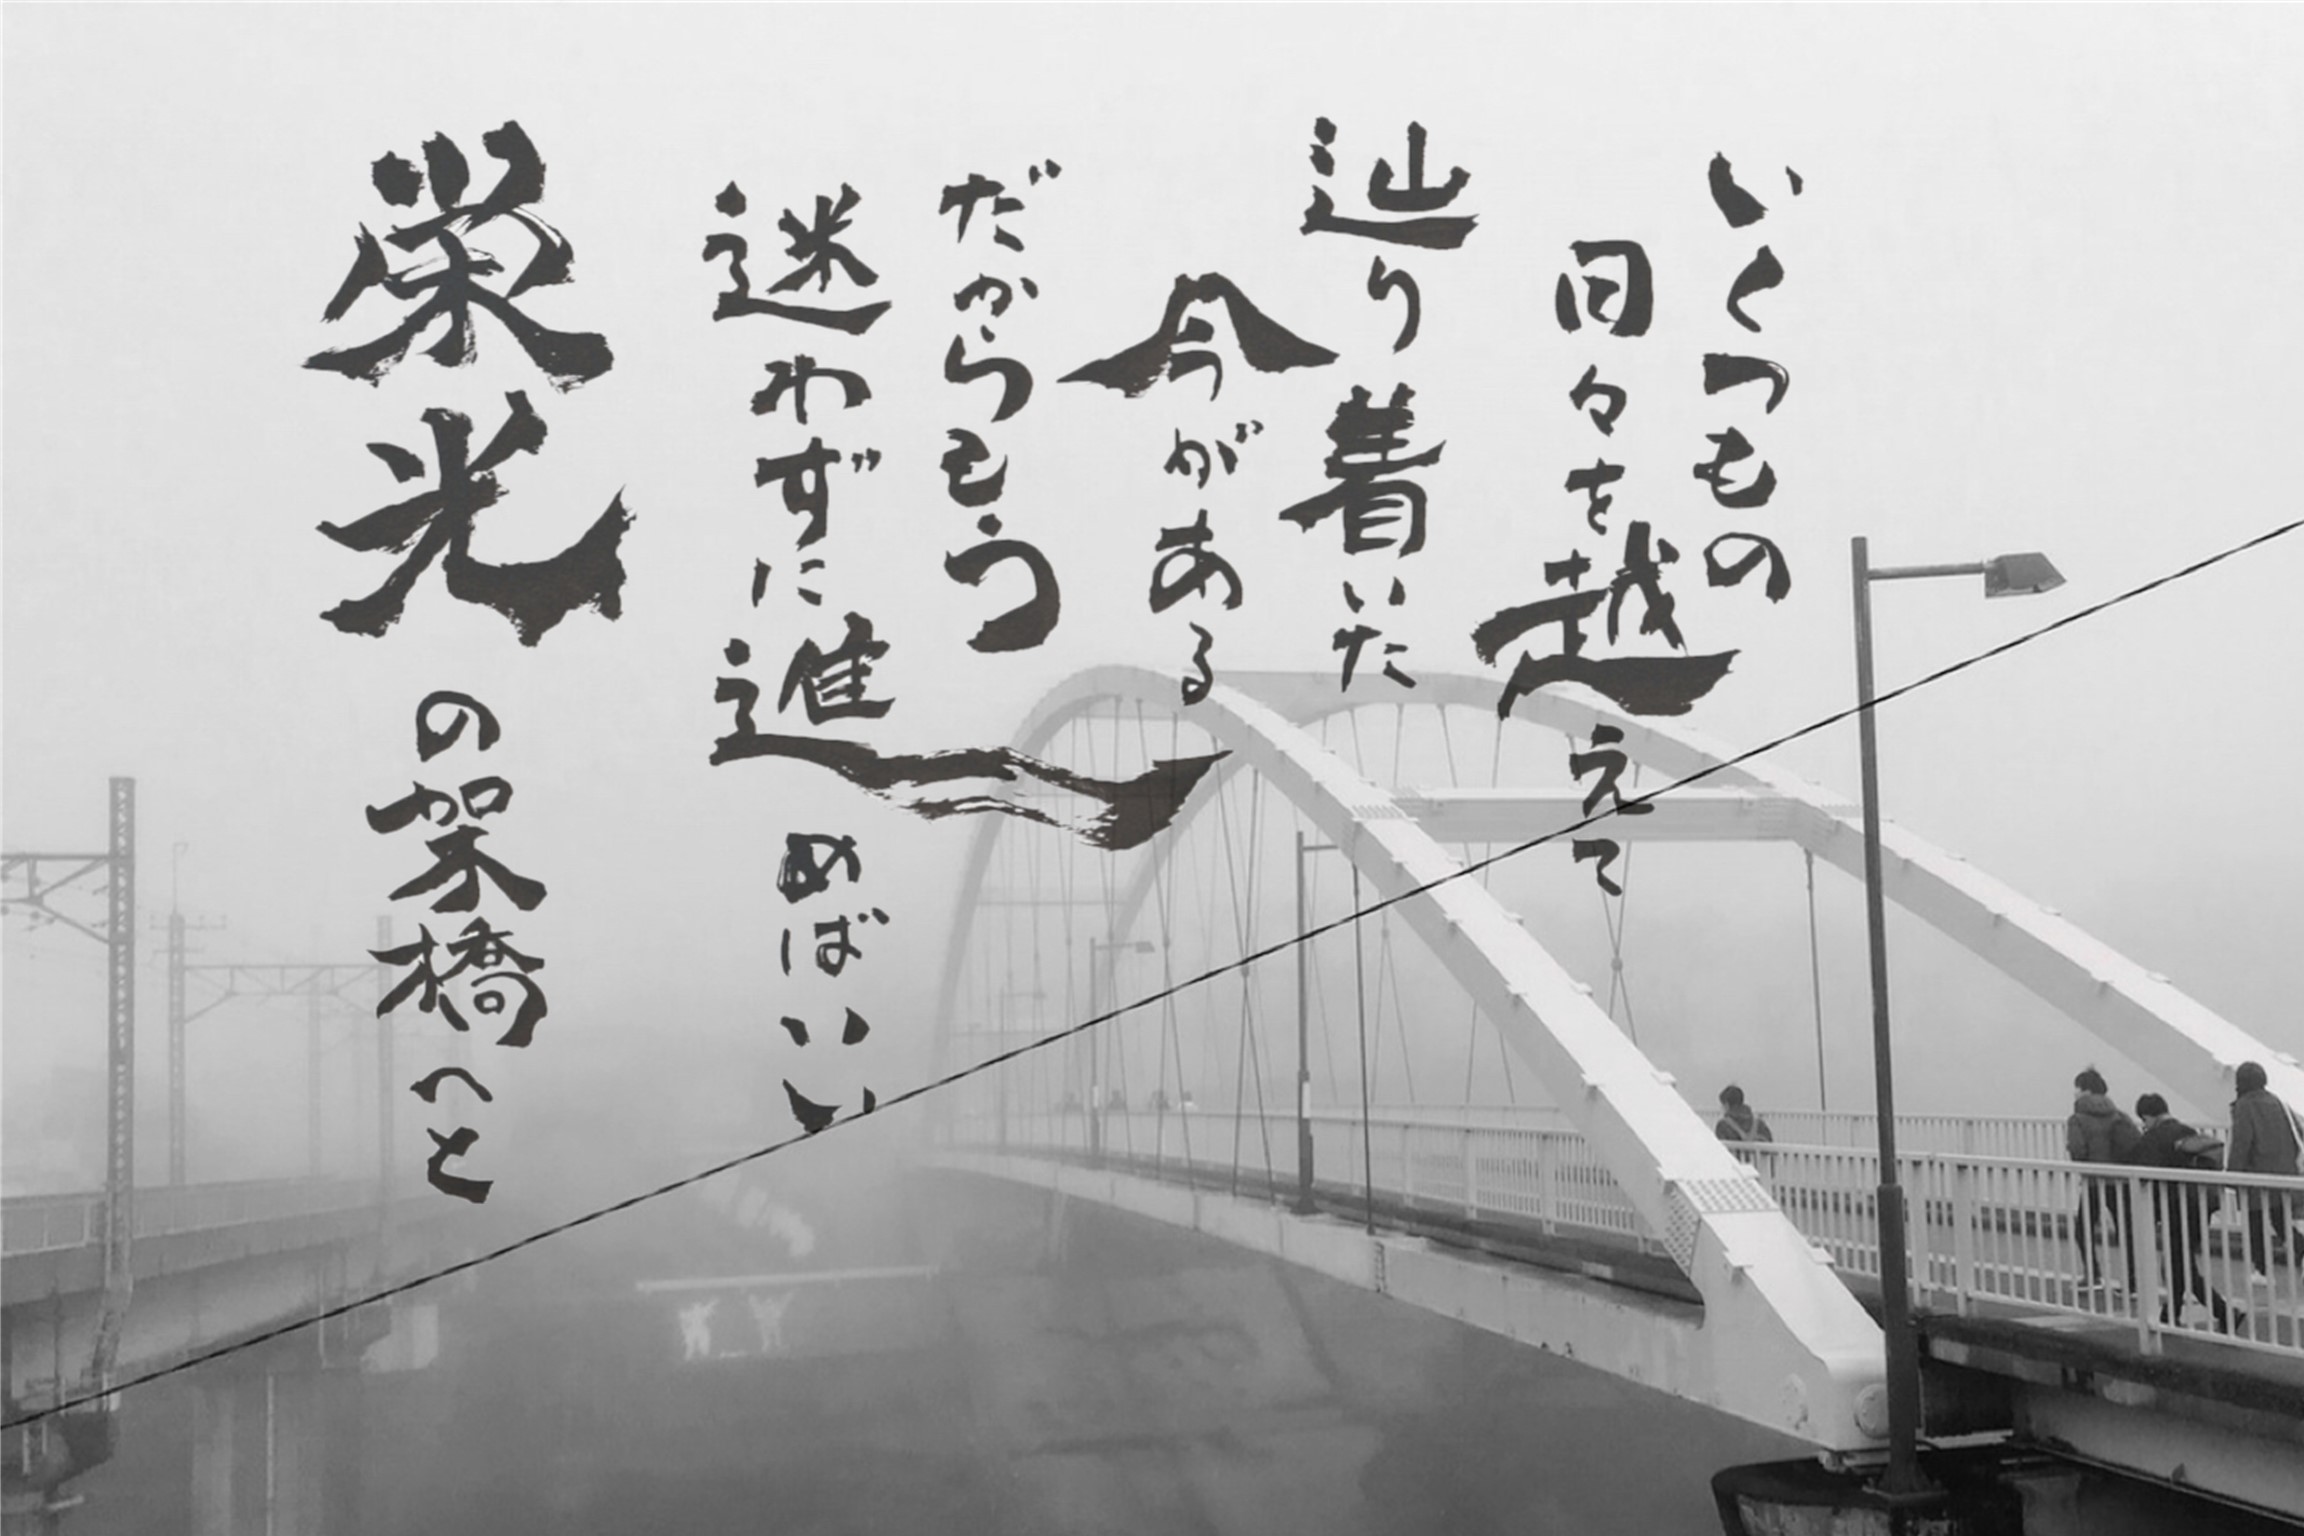 いくつもの
日々を越えて
辿り着いた
今がある
だからもう
迷わずに進めばいい
栄光の架橋へと